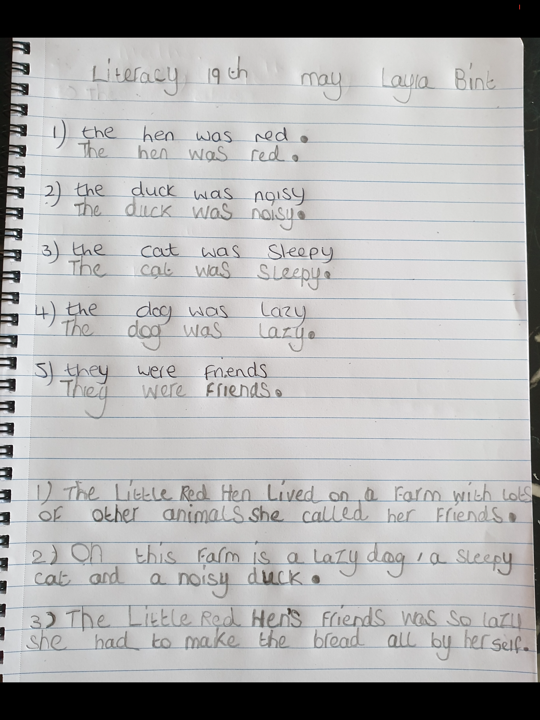 Literacy 19th may Layla Bint
1) the hen was red.
The hen was red.
2) the duck was noisy
The duck was noisy.
3) the cat was sleepy
The cat was sleepy.
4) the dog was lazy
The dog was lazy.
5) they were friends
They were friends.
1) The Little Red Hen Lived on a Farm with Lots
of other animals she called her Friends.
2) On this Farm is a lazy dog, a sleepy
cat and a noisy duck.
3) The Little Red Hen's Friends was so lazy
she had to make the bread all by her self.